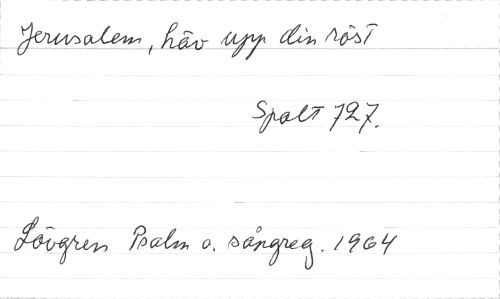 Jerusalem, häv upp din röst
Spalt 727.
Lövgren Psalm o. sångreg. 1964